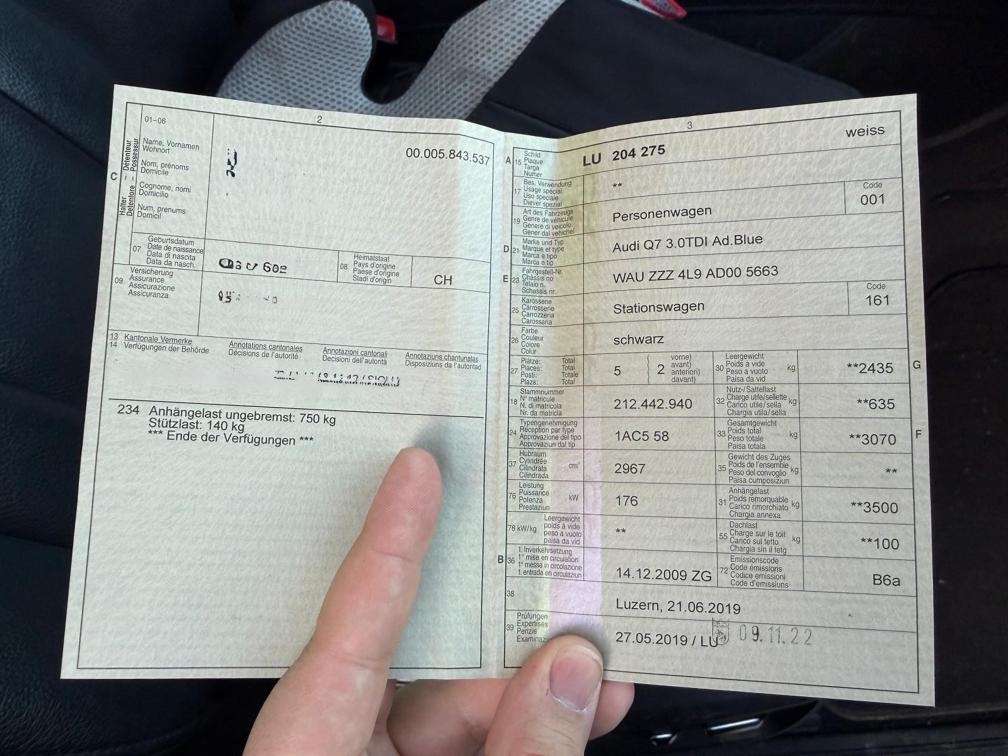 01-06
2
00.005.843.537
C
Halter Détenteur
Detentore Possessur
Name, Vornamen
Wohnort
Nom, prénoms
Domicile
Cognome, nomi
Domicilio
Num, prenums
Domicil
07
Geburtsdatum
Date de naissance
Data di nascita
Data da nasch.
08
Heimatstaat
Pays d'origine
Paese d'origine
Stadi d'origin
CH
09
Versicherung
Assurance
Assicurazione
Assicuranza
13
14
Kantonale Vermerke
Verfügungen der Behörde
Annotations cantonales
Décisions de l'autorité
Annotazioni cantonali
Decisioni dell'autorità
Annotaziuns chantunalas
Disposiziuns da l'autoritad
234 Anhängelast ungebremst: 750 kg
Stützlast: 140 kg
*** Ende der Verfügungen ***
3
weiss
A 15
Schild
Plaque
Targa
Numer
LU 204 275
17
Bes. Verwendung
Usage spécial
Uso speciale
Diever spezial
**
19
Art des Fahrzeugs
Genre de véhicule
Genere di veicolo
Gener dal vehichel
Personenwagen
Code
001
D 21
Marke und Typ
Marque et type
Marca e tipo
Marca e tip
Audi Q7 3.0TDI Ad.Blue
E 23
Fahrgestell-Nr.
Châssis no
Telaio n.
Schassis nr.
WAU ZZZ 4L9 AD00 5663
25
Karosserie
Carrosserie
Carrozzeria
Carossaria
Stationswagen
Code
161
26
Farbe
Couleur
Colore
Colur
schwarz
27
Plätze: Total
Places: Total
Posti: Totale
Plazs: Total
5
2
vorne)
avant)
anteriori)
davant)
30
Leergewicht
Poids à vide
Peso a vuoto
Paisa da vid
kg
**2435
G
18
Stammnummer
N° matricule
N. di matricola
Nr. da matricla
212.442.940
32
Nutz-/Sattellast
Charge utile/sellette
Carico utile/sella
Chargia utila/sella
kg
**635
24
Typengenehmigung
Réception par type
Approvazione del tipo
Approvaziun dal tip
1AC5 58
33
Gesamtgewicht
Poids total
Peso totale
Paisa totala
kg
**3070
F
37
Hubraum
Cylindrée
Cilindrata
Cilindrada
cm³
2967
35
Gewicht des Zuges
Poids de l'ensemble
Peso del convoglio
Paisa cumposiziun
kg
**
76
Leistung
Puissance
Potenza
Prestaziun
kW
176
31
Anhängelast
Poids remorquable
Carico rimorchiato
Chargia annexa
kg
**3500
78 kW/kg
Leergewicht
poids à vide
peso a vuoto
paisa da vid
**
55
Dachlast
Charge sur le toit
Carico sul tetto
Chargia sin il tetg
kg
**100
B 36
1. Inverkehrsetzung
1re mise en circulation
1a messa in circolazione
1. entrada en circulaziun
14.12.2009 ZG
72
Emissionscode
Code émissions
Codice emissioni
Code d'emissiuns
B6a
38
Luzern, 21.06.2019
39
Prüfungen
Expertises
Perizie
27.05.2019 / LU
09.11.22